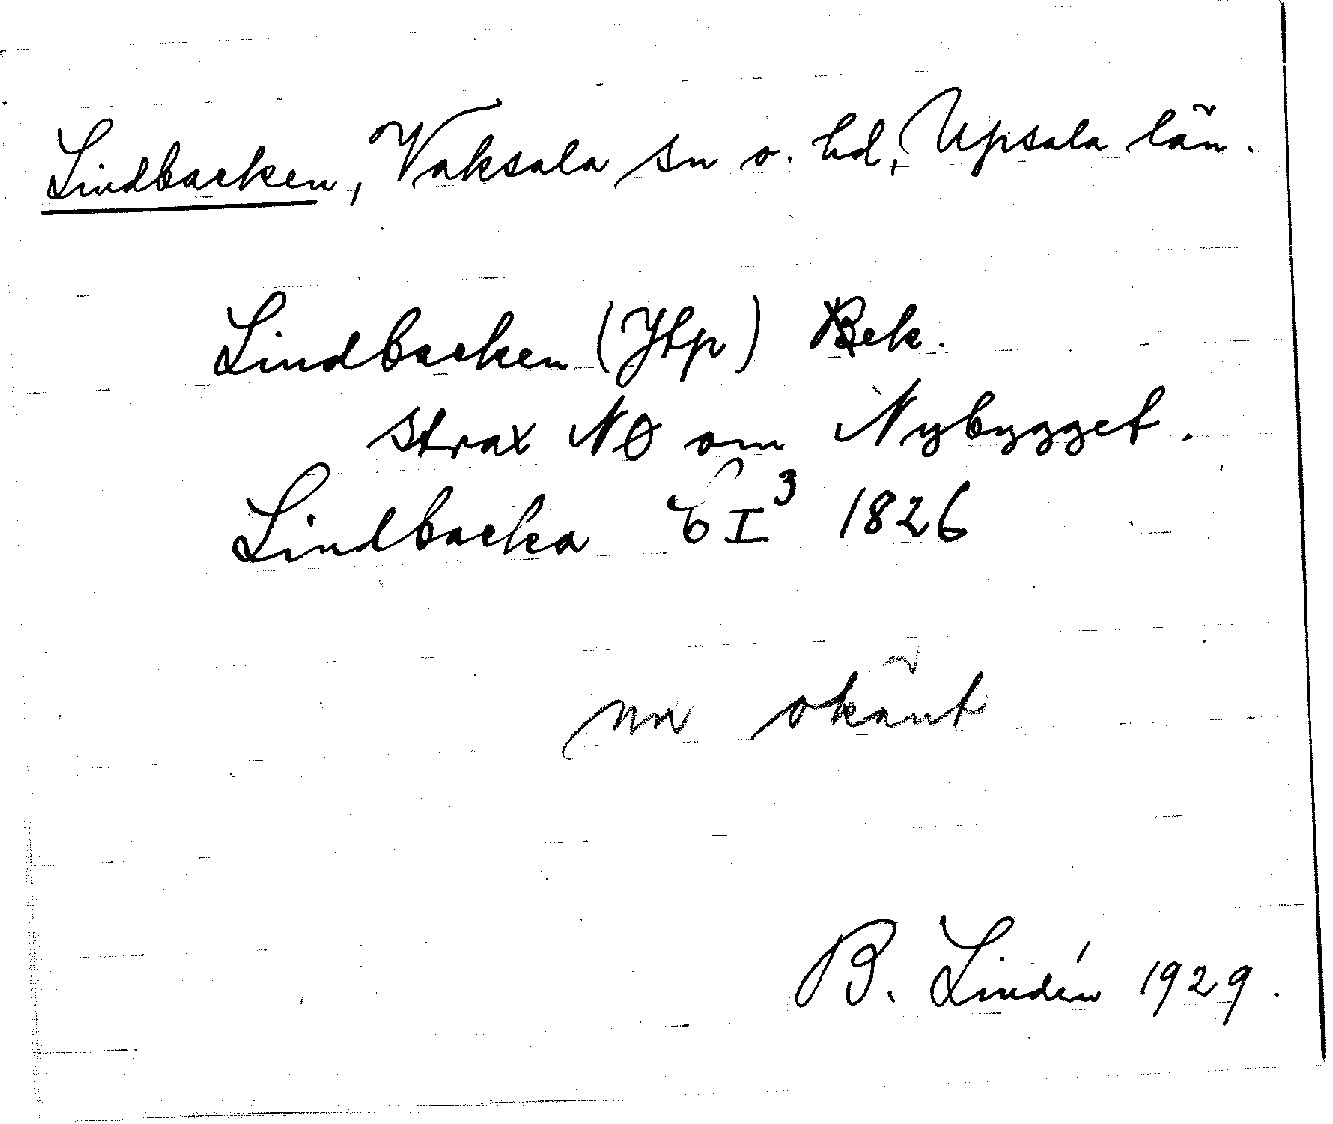 Lindbacken, Vaksala sn o. hd, Upsala län.
Lindbacken (Jtp) Bek.
strax NO om Nybygget.
Lindbacka EI³ 1826
nu okänt
B. Lindén 1929.